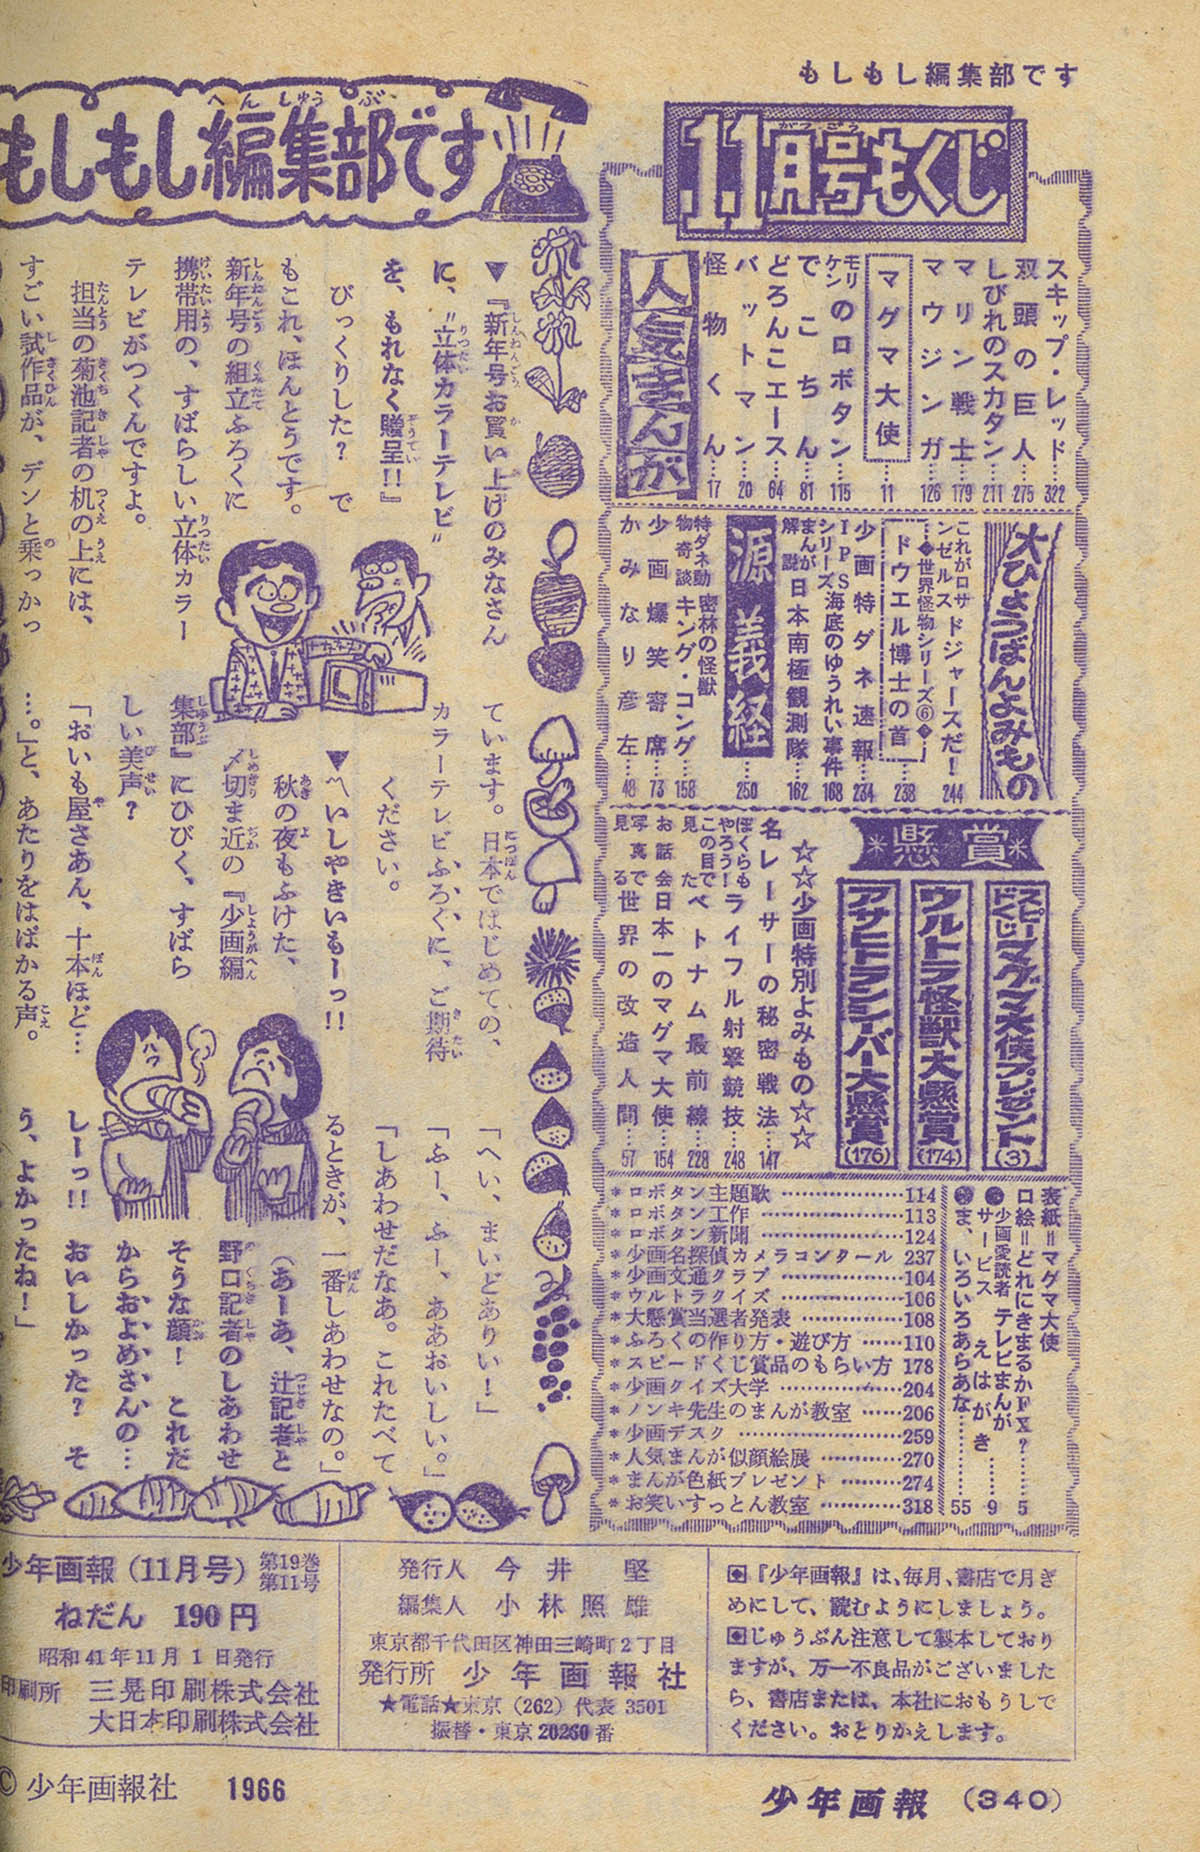 もしもし編集部です
11月号もくじ
がつごう
スキップ・レッド…322
双頭の巨人…275
しびれのスカタン…211
マリン戦士…179
マウジンガ…126
マグマ大使…11
モリケンのロボタン…115
でこちん…81
どろんこエース…64
バットマン…20
怪物くん…17
人気まんが
大ひょうばんよみもの
これがロサンゼルスドジャースだ!…244
◆世界怪物シリーズ⑥◆
ドウエル博士の首…238
少画特ダネ速報…234
IPSシリーズ海底のゆうれい事件…168
まんが解説日本南極観測隊…162
源義経…250
特ダネ動物奇談密林の怪獣キング・コング…158
少画爆笑寄席…73
かみなり彦左…48
*懸賞*
スピードくじマグマ大使プレゼント(3)
ウルトラ怪獣大懸賞(174)
アサヒトランシーバー大懸賞(176)
☆☆少画特別よみもの☆☆
名レーサーの秘密戦法…147
ぼくらもやろう!ライフル射撃競技…248
この目で見たベトナム最前線…228
お話会日本一のマグマ大使…154
写真で見る世界の改造人間…57
表紙=マグマ大使
口絵=どれにきまるかFX?…5
少画愛読者サービス テレビまんがえはがき…9
ま、いろいろあらあな…55
*ロボタン主題歌…114
*ロボタン工作…113
*ロボタン新聞…124
*少画名探偵カメラコンクール 237
*少画文通クラブ…104
*ウルトラクイズ…106
*大懸賞当選者発表…108
*ふろくの作り方・遊び方…110
*スピードくじ賞品のもらい方 178
*少画クイズ大学…204
*ノンキ先生のまんが教室…206
*少画デスク…259
*人気まんが似顔絵展…270
*まんが色紙プレゼント…274
*お笑いすっとん教室…318
へんしゅうぶ
もしもし編集部です
▼『新年号お買い上げのみなさん
に、"立体カラーテレビ"
を、もれなく贈呈!!』
びっくりした? で
もこれ、ほんとうです。
新年号の組立ふろくに
携帯用の、すばらしい立体カラー
テレビがつくんですよ。
担当の菊池記者の机の上には、
すごい試作品が、デンと乗っかっ
ています。日本ではじめての、
カラーテレビふろくに、ご期待
ください。
▼〽いしやきいもーっ!!
秋の夜もふけた、
〆切ま近の『少画編
集部』にひびく、すばら
しい美声?
「おいも屋さあん、十本ほど…
…。」と、あたりをはばかる声。
「へい、まいどありい!」
「ふー、ふー、ああおいしい。」
「しあわせだなあ。これたべて
るときが、一番しあわせなの。」
(あーあ、辻記者と
野口記者のしあわせ
そうな顔! これだ
からおよめさんの…
しーっ!! おいしかった? そ
う、よかったね!」
少年画報(11月号)第19巻第11号
ねだん 190円
昭和41年11月1日発行
印刷所 三晃印刷株式会社
大日本印刷株式会社
発行人 今井 堅
編集人 小林照雄
東京都千代田区神田三崎町2丁目
発行所 少年画報社
★電話★東京(262)代表3501
振替・東京20260番
◉『少年画報』は、毎月、書店で月ぎ
めにして、読むようにしましょう。
◉じゅうぶん注意して製本しており
ますが、万一不良品がございました
ら、書店または、本社におもうしで
ください。おとりかえします。
© 少年画報社 1966
少年画報 (340)